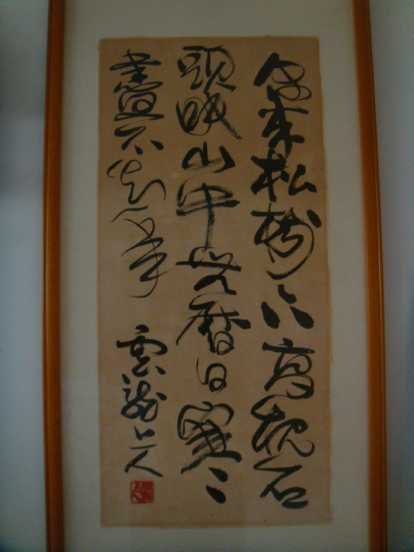 偶來松樹下高枕石
頭眠山中無曆日寒
盡不知年
雲龍人